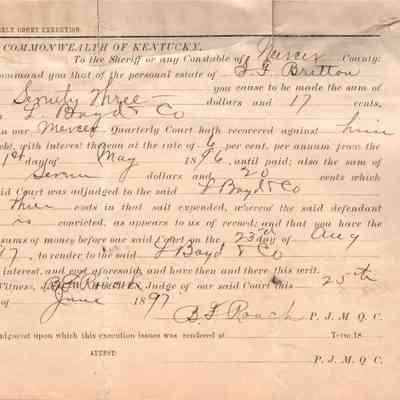 RLY COURT EXECUTION.
COMMONWEALTH OF KENTUCKY.
To the Sheriff or any Constable of Mercer County:
ommand you that of the personal estate of Britton
you cause to be made the sum of
Seventy Three dollars and 17 cents,
L Boyd & Co
in our Mercer Quarterly Court hath recovered against him
ebt, with interest thereon at the rate of 6 per cent. per annum from the
1st day of May 1896, until paid; also the sum of
Seven dollars and 20 cents which
aid Court was adjudged to the said L Boyd & Co
their costs in that suit expended, whereof the said defendant
is convicted, as appears to us of record; and that you have the
sums of money before our said Court on the 23rd day of Aug
97, to render to the said L Boyd & Co
interest, and cost aforesaid, and have then and there this writ.
Witness, Judge of our said Court this 25th
of June 1897
B. F. Roach P. J. M. Q. C.
udgment upon which this execution issues was rendered at Term, 18
ATTEST: P. J. M. Q. C.